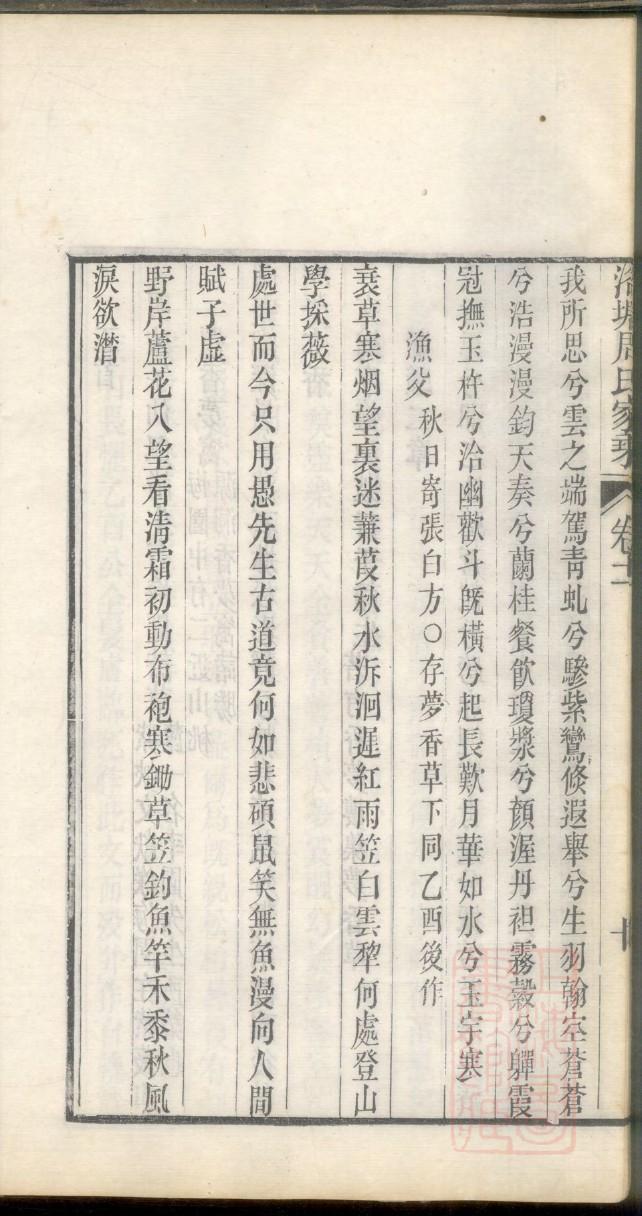 洛塘周氏家乘 卷十二
我所思兮雲之端駕青虬兮驂紫鸞倏遐舉兮生羽翰空蒼蒼
兮浩漫漫鈞天奏兮蘭桂餐飲瓊漿兮顏渥丹袒霧縠兮嚲霞
冠撫玉杵兮洽幽歡斗既橫兮起長歎月華如水兮玉宇寒
漁父 秋日寄張白方〇存夢香草下同乙酉後作
衰草寒烟望裏迷蒹葭秋水泝洄遲紅雨笠白雲犂何處登山
學採薇
處世而今只用愚先生古道竟何如悲碩鼠笑無魚漫向人間
賦子虛
野岸蘆花入望看清霜初動布袍寒鋤草笠釣魚竿禾黍秋風
淚欲潸